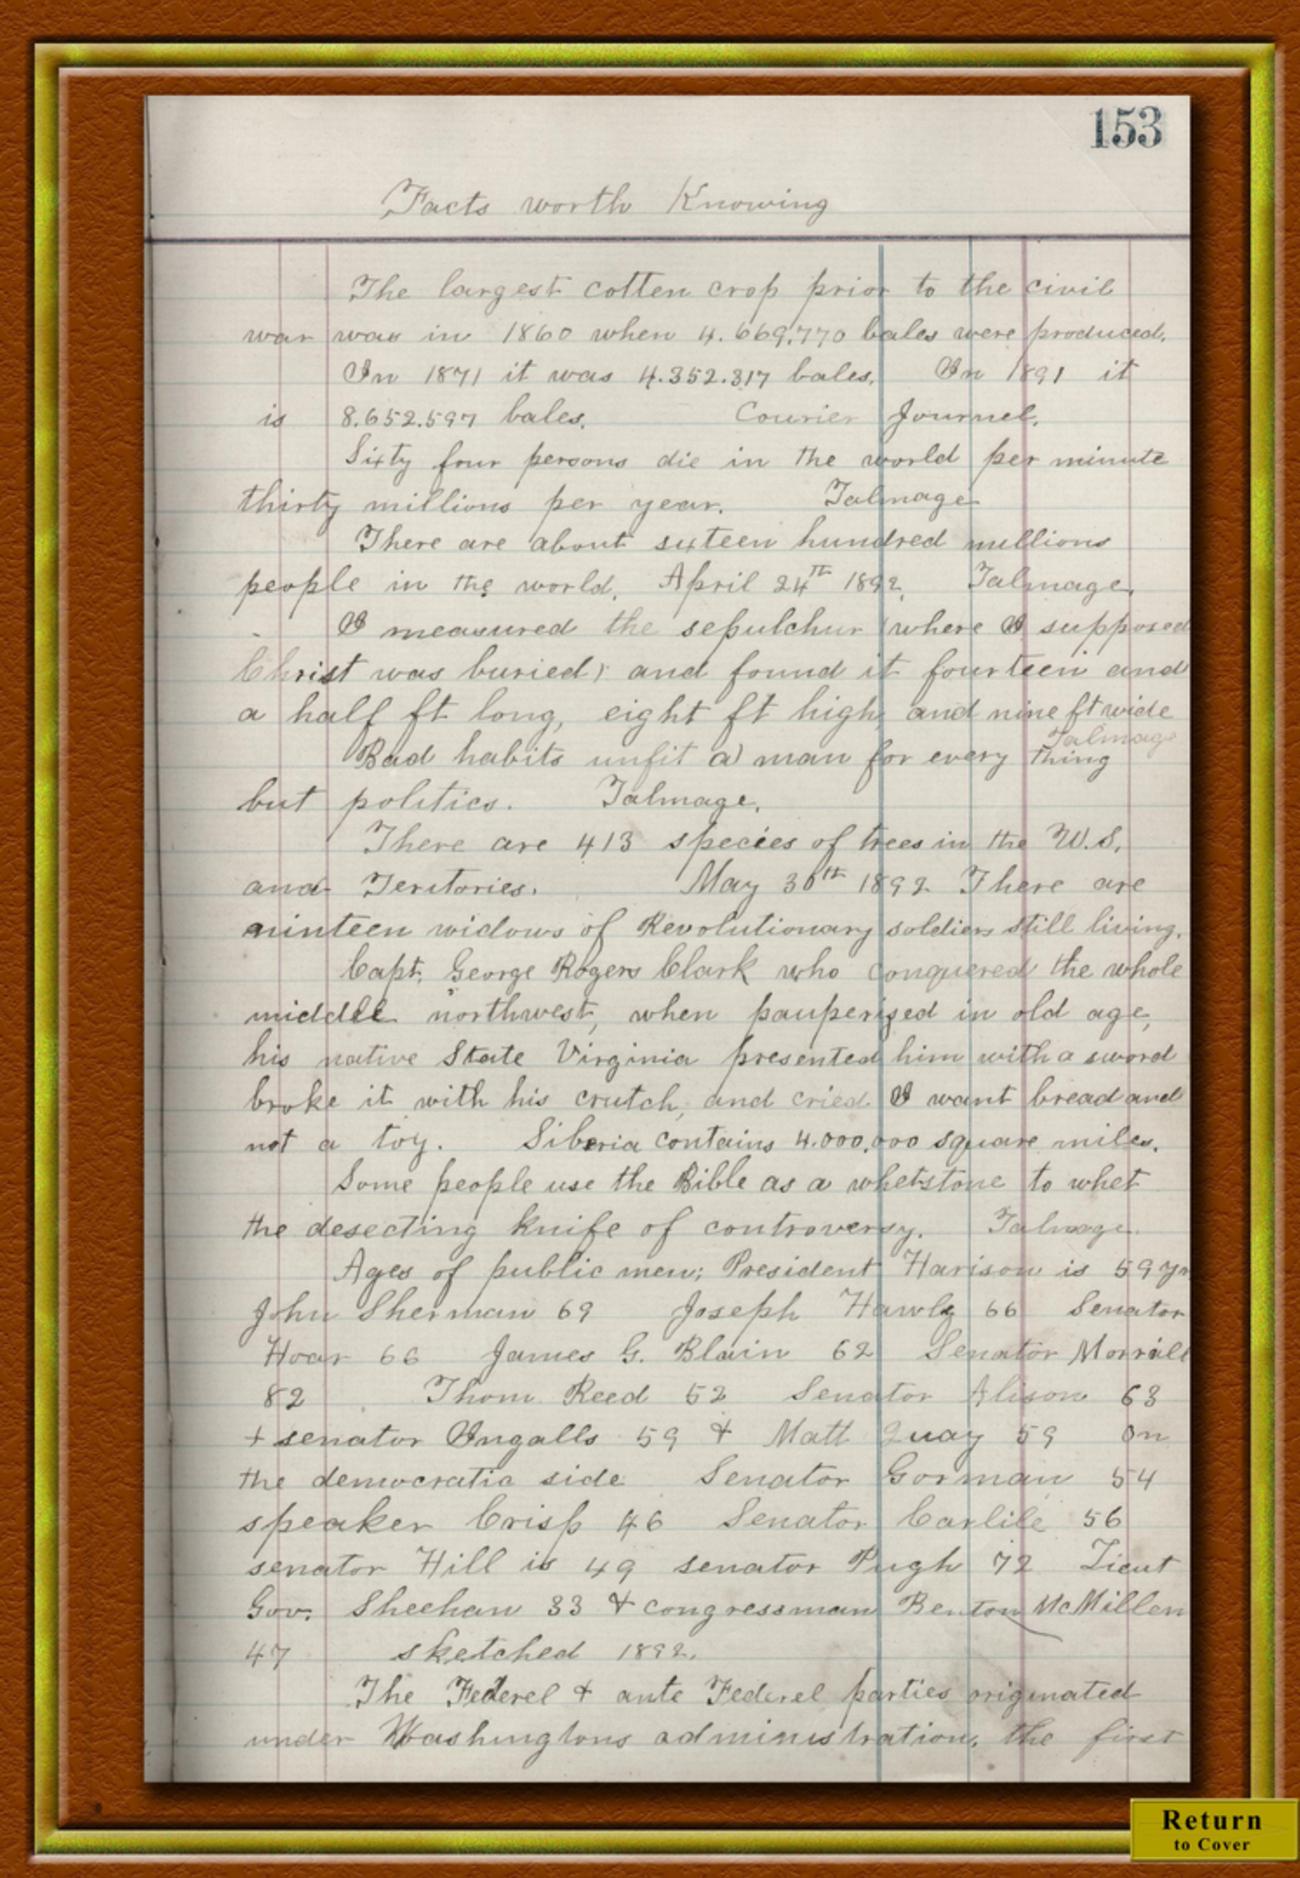 153
Facts worth Knowing
The largest cotten crop prior to the civil
war was in 1860 when 4.669.770 bales were produced.
In 1871 it was 4.352.317 bales. In 1891 it
is 8.652.597 bales. Courier Journel.
Sixty four persons die in the world per minute
thirty millions per year. Talmage
There are about sixteen hundred millions
people in the world. April 24th 1892. Talmage.
I measured the sepulchur (where I supposed
Christ was buried) and found it fourteen and
a half ft long, eight ft high, and nine ft wide
Talmage
Bad habits unfit a man for every thing
but politics. Talmage.
There are 413 species of trees in the U.S.
and Teritories. May 30th 1892 There are
ninteen widows of Revolutionary soldiers still living.
Capt. George Rogers Clark who conquered the whole
middle northwest, when pauperized in old age,
his native State Virginia presented him with a sword
broke it with his crutch, and cried I want bread and
not a toy. Siberia contains 4.000.000 square miles.
Some people use the Bible as a whetstone to whet
the desecting knife of controversy. Talmage.
Ages of public men; President Harison is 59 yr
John Sherman 69 Joseph Hawly 66 Senator
Hoar 66 James G. Blain 62 Senator Morrill
82 Thom Reed 52 Senator Alison 63
+ senator Ingalls 59 & Matt Quay 59 On
the democratic side Senator Gorman 54
speaker Crisp 46 Senator Carlile 56
senator Hill is 49 senator Pugh 72 Lieut
Gov. Sheehan 33 & congressman Benton McMillen
47 sketched 1892.
The Federel & ante Federel parties originated
under Washingtons administration. the first
Return
to Cover